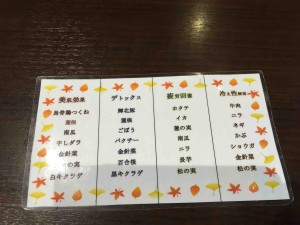 美肌効果
烏骨鶏つくね
蓮根
南瓜
干しダラ
金針菜
の実
白キクラゲ
デトックス
鮮北鮭
蓮根
ごぼう
パクチー
金針菜
百合根
黒キクラゲ
疲労回復
ホタテ
イカ
蓮の実
南瓜
ニラ
長芋
松の実
冷え性
牛肉
ニラ
ネギ
かぶ
ショウガ
金針菜
松の実